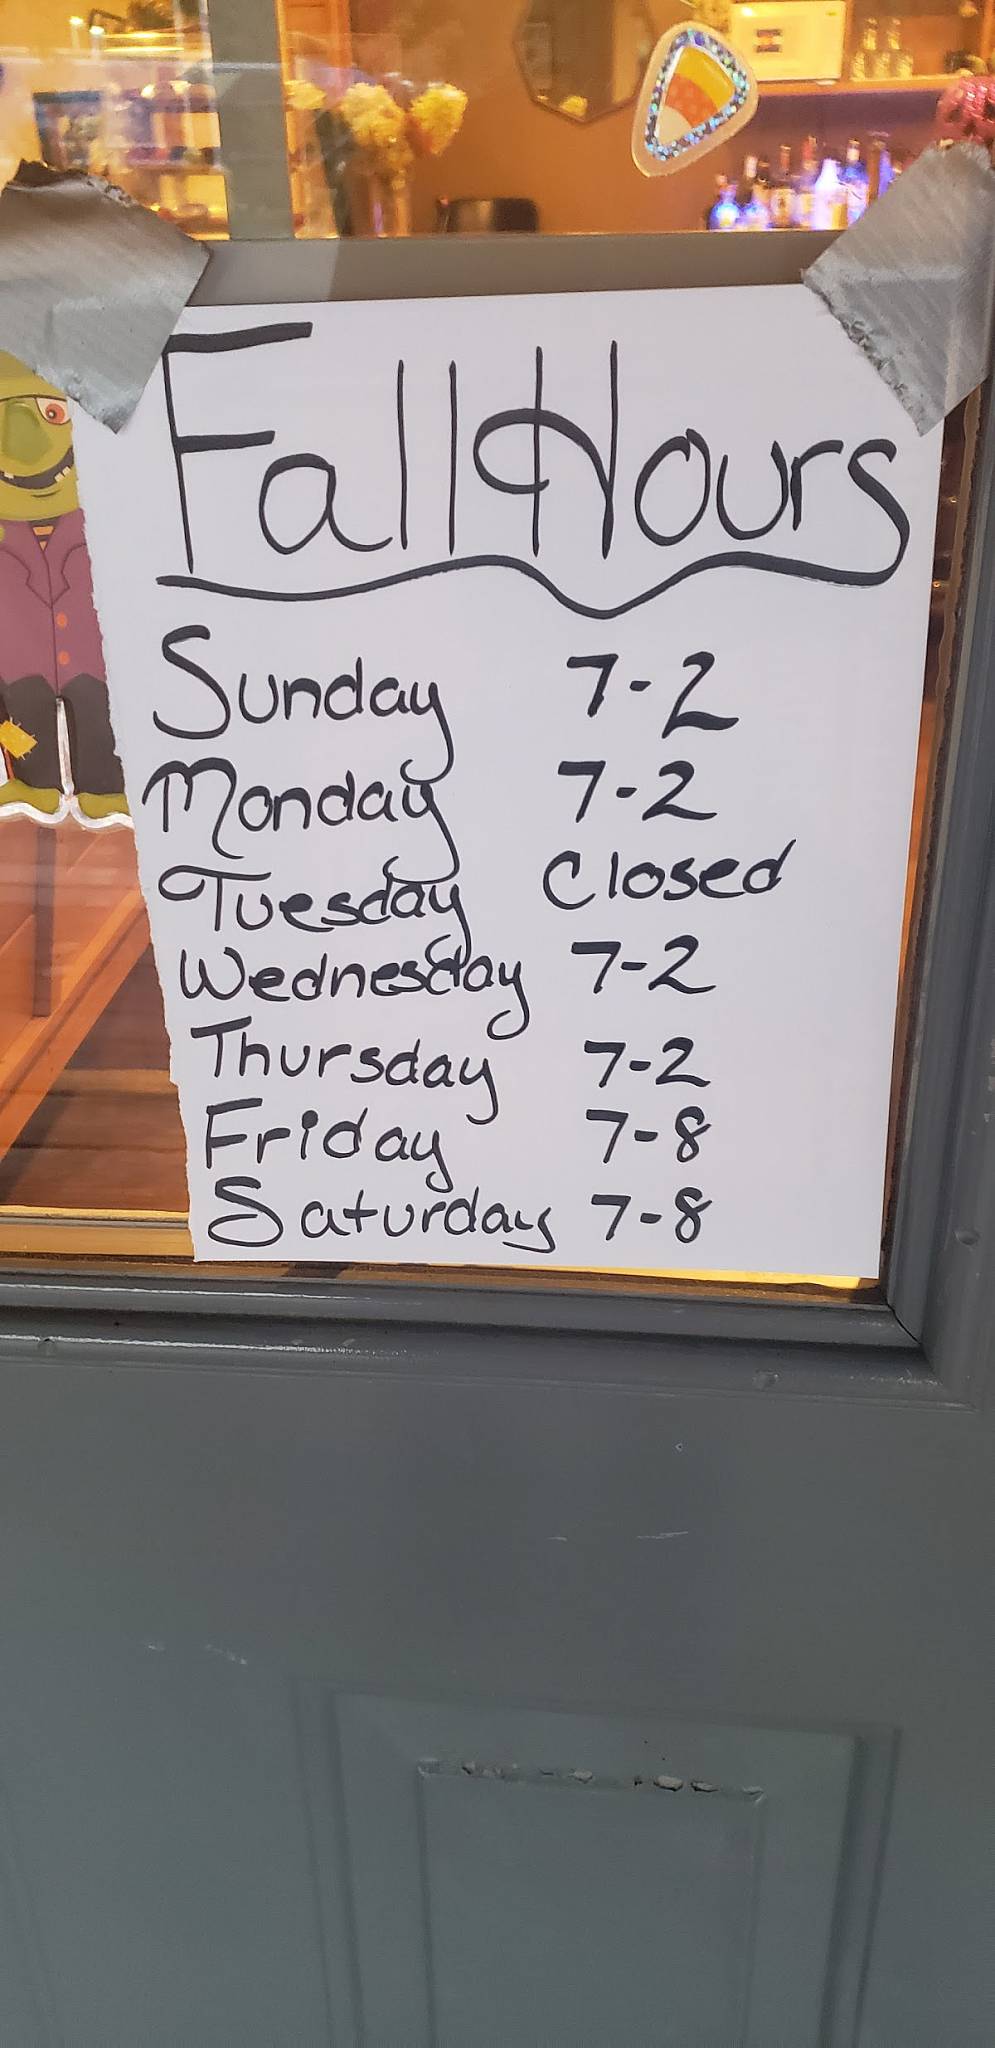 Fall Hours
Sunday 7-2
Monday 7-2
Tuesday Closed
Wednesday 7-2
Thursday 7-2
Friday 7-8
Saturday 7-8